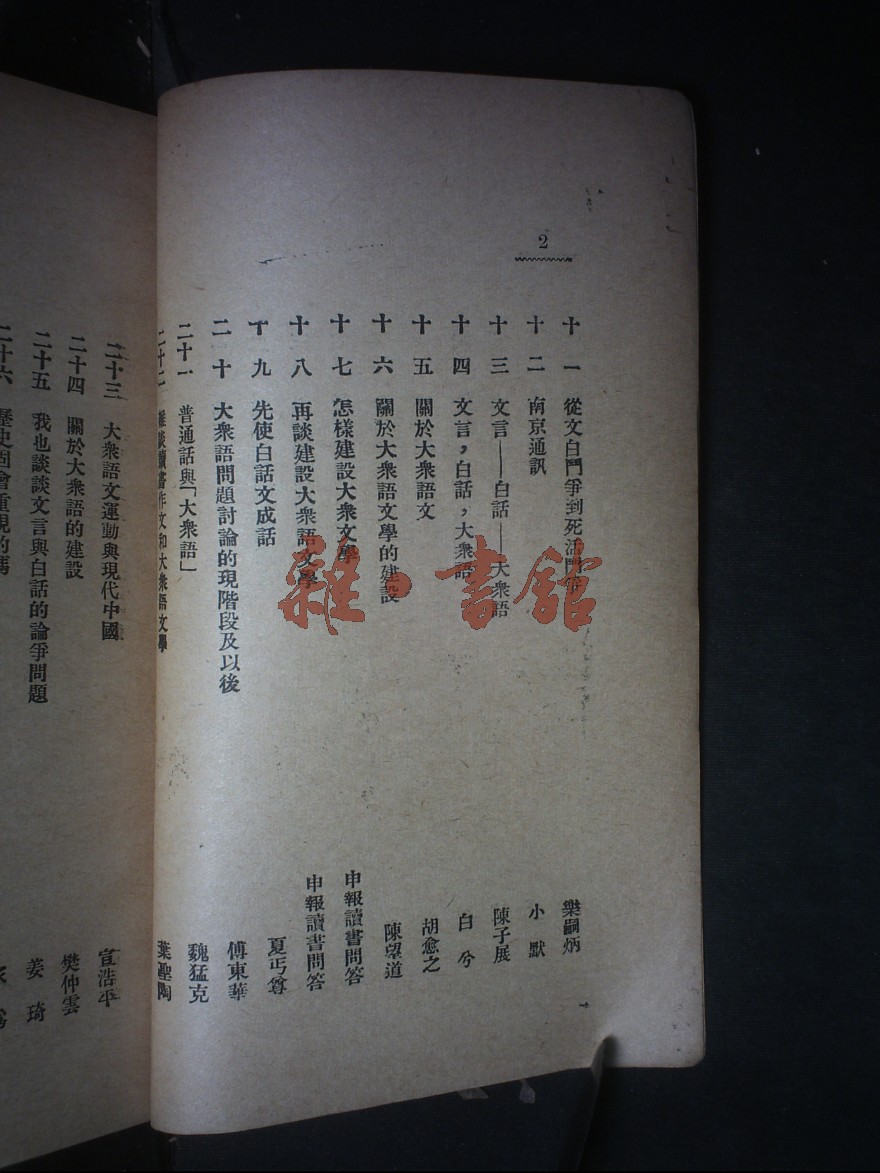 2
十一 從文白鬥爭到死活鬥爭 樂嗣炳
十二 南京通訊 小默
十三 文言——白話——大衆語 陳子展
十四 文言，白話，大衆語 白兮
十五 關於大衆語文 胡愈之
十六 關於大衆語文學的建設 陳望道
十七 怎樣建設大衆文學 申報讀書問答
十八 再談建設大衆語文學 申報讀書問答
十九 先使白話文成話 夏丏尊
二十 大衆語問題討論的現階段及以後 傅東華
二十一 普通話與「大衆語」 魏猛克
二十二 雜談讀書作文和大衆語文學 葉聖陶
二十三 大衆語文運動與現代中國 宣浩平
二十四 關於大衆語的建設 樊仲雲
二十五 我也談談文言與白話的論爭問題 姜琦
二十六 歷史因會重現的嗎
雜·書館